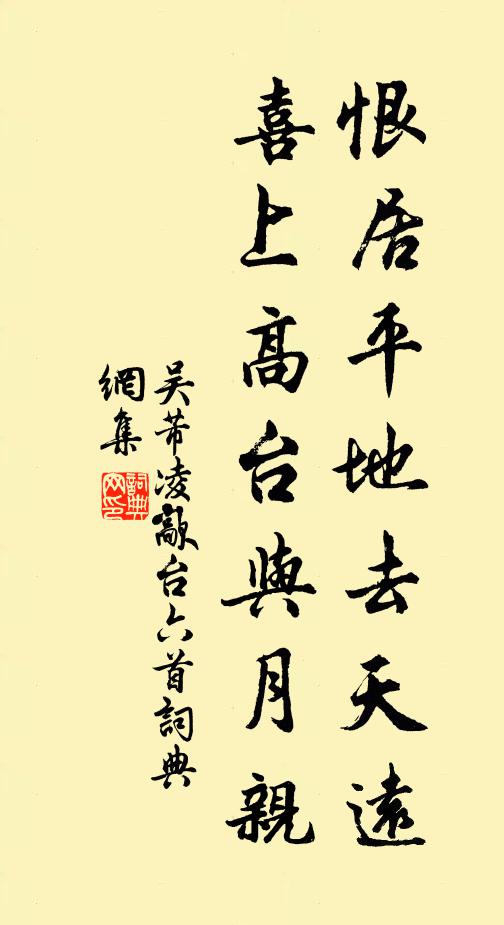 恨居平地去天遠
喜上高台與月親
吴芾凌歊台六首詞典
網集
詞典
网印